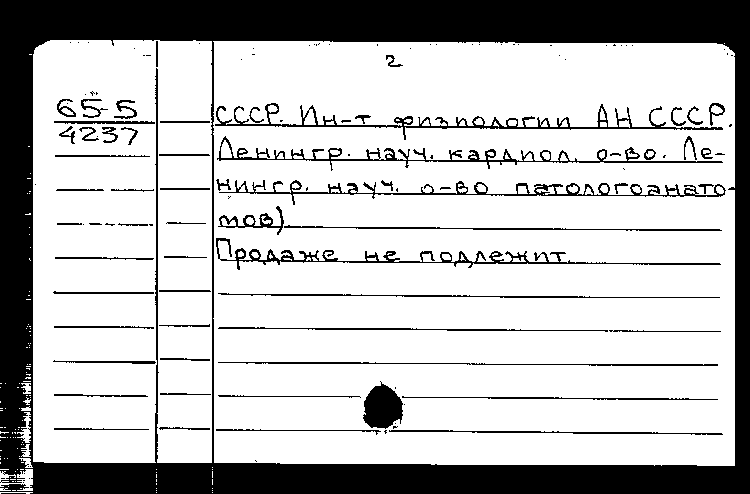 2
65-5
4237
СССР. Ин-т физиологии АН СССР.
Ленингр. науч. кардиол. о-во. Ле-
нингр. науч. о-во патологоанато-
мов)
Продаже не подлежит.